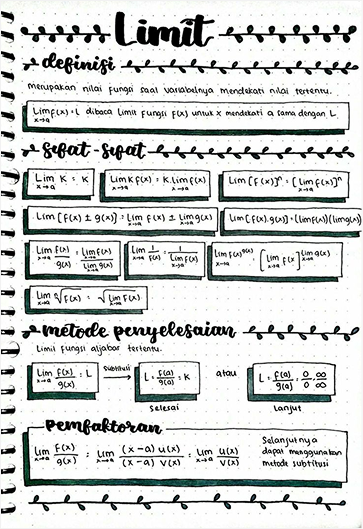 Limit
definisi
merupakan nilai fungsi saat variabelnya mendekati nilai tertentu.
Lim f(x) = L dibaca limit fungsi f(x) untuk x mendekati a sama dengan L.
x→a
Sifat - Sifat
Lim K = K
x→a
Lim K f(x) = K. Lim f(x)
x→a x→a
Lim [f(x)]ⁿ = [Lim f(x)]ⁿ
x→a x→a
Lim [f(x) ± g(x)] = Lim f(x) ± Lim g(x)
x→a x→a x→a
Lim [f(x). g(x)] = (Lim f(x)) (Lim g(x))
x→a x→a x→a
Lim f(x)/g(x) = Lim f(x)/Lim g(x)
x→a x→a x→a
Lim 1/f(x) = 1/Lim f(x)
x→a x→a
Lim f(x)^g(x) [Lim f(x]^Lim g(x)
x→a x→a x→a
Lim ⁿ√f(x) = ⁿ√Lim f(x)
x→a x→a
metode penyelesaian
Limit fungsi aljabar tertentu.
Lim f(x)/g(x) = L
x→a
subtitusi
→
L = f(a)/g(a) = K
atau
L = f(a)/g(a) = 0/0, ∞/∞
selesai
Lanjut
Pemfaktoran
Lim f(x)/g(x) = Lim (x-a) u(x)/(x-a) v(x) = Lim u(x)/v(x)
x→a x→a x→a
Selanjutnya
dapat menggunakan
metode subtitusi